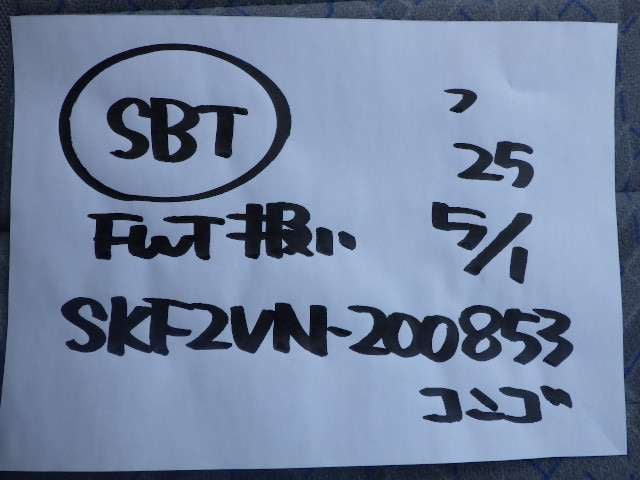 SBT
フ
25
FWT扱い 5/1
SKF2VN-200853
コンゴ